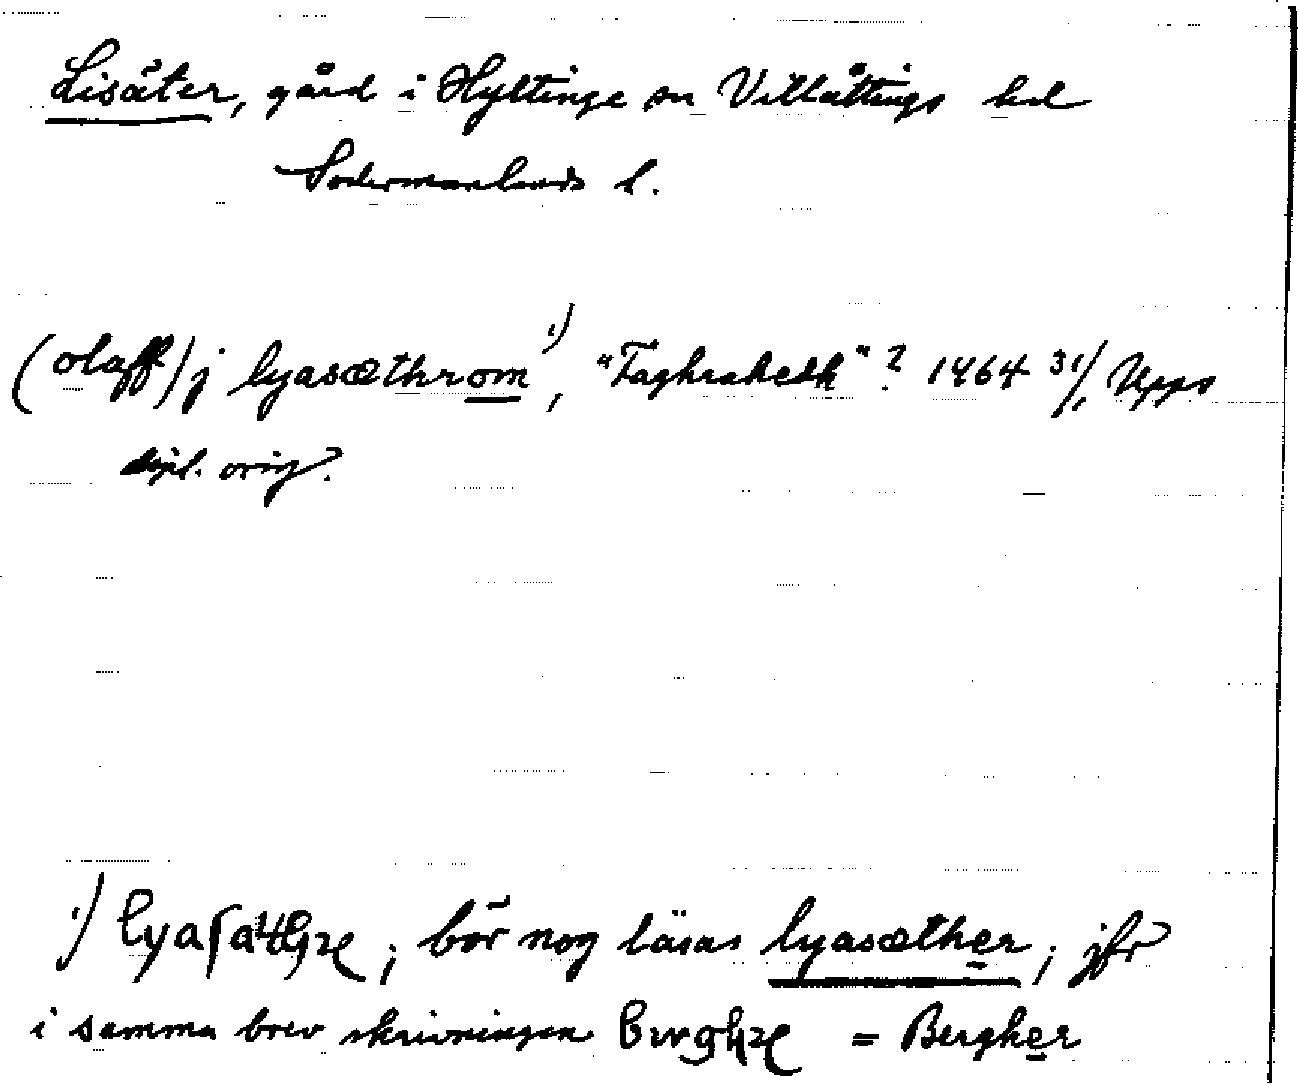 Lisäter, gård i Hyltinge sn Villåttings hd
Södermanlands l.
(olaff) j lyasæthrom ¹⁾, "Taghrahedh"? 1464 31/1 Upps
dipl. orig?
¹⁾ lyaſæthꝛ ; bör nog läsas lyasæther ; jfr
i samma brev skrivningen = Bergher